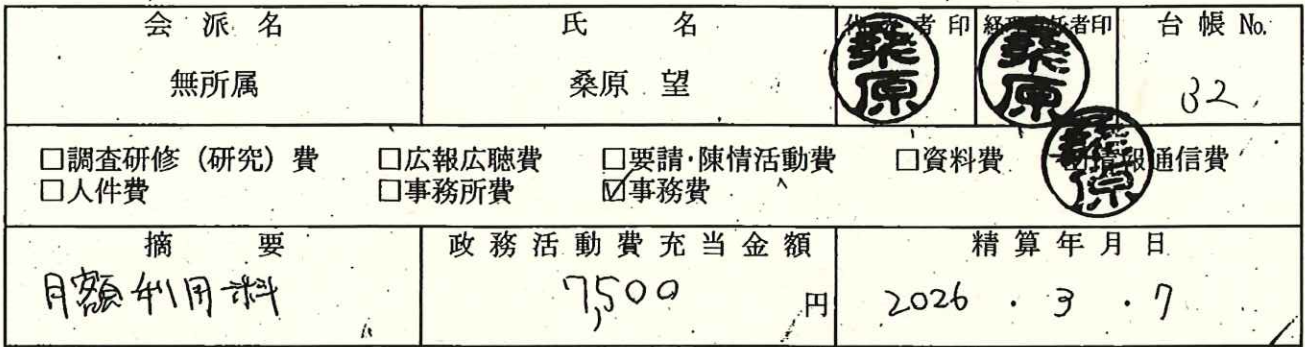 会派名 氏名 代表者印 経理責任者印 台帳No.
無所属 桑原 望 桑原 桑原 32
□調査研修(研究)費 □広報広聴費 □要請・陳情活動費 □資料費 情報通信費
桑原
□人件費 □事務所費 ☑事務費
摘要 政務活動費充当金額 精算年月日
月額利用料 7,500円 2026・3・7